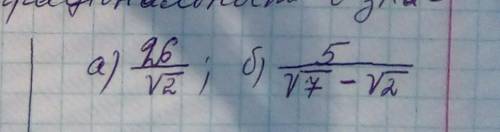 а) 26/√2 ; б) 5/(√7 − √2)